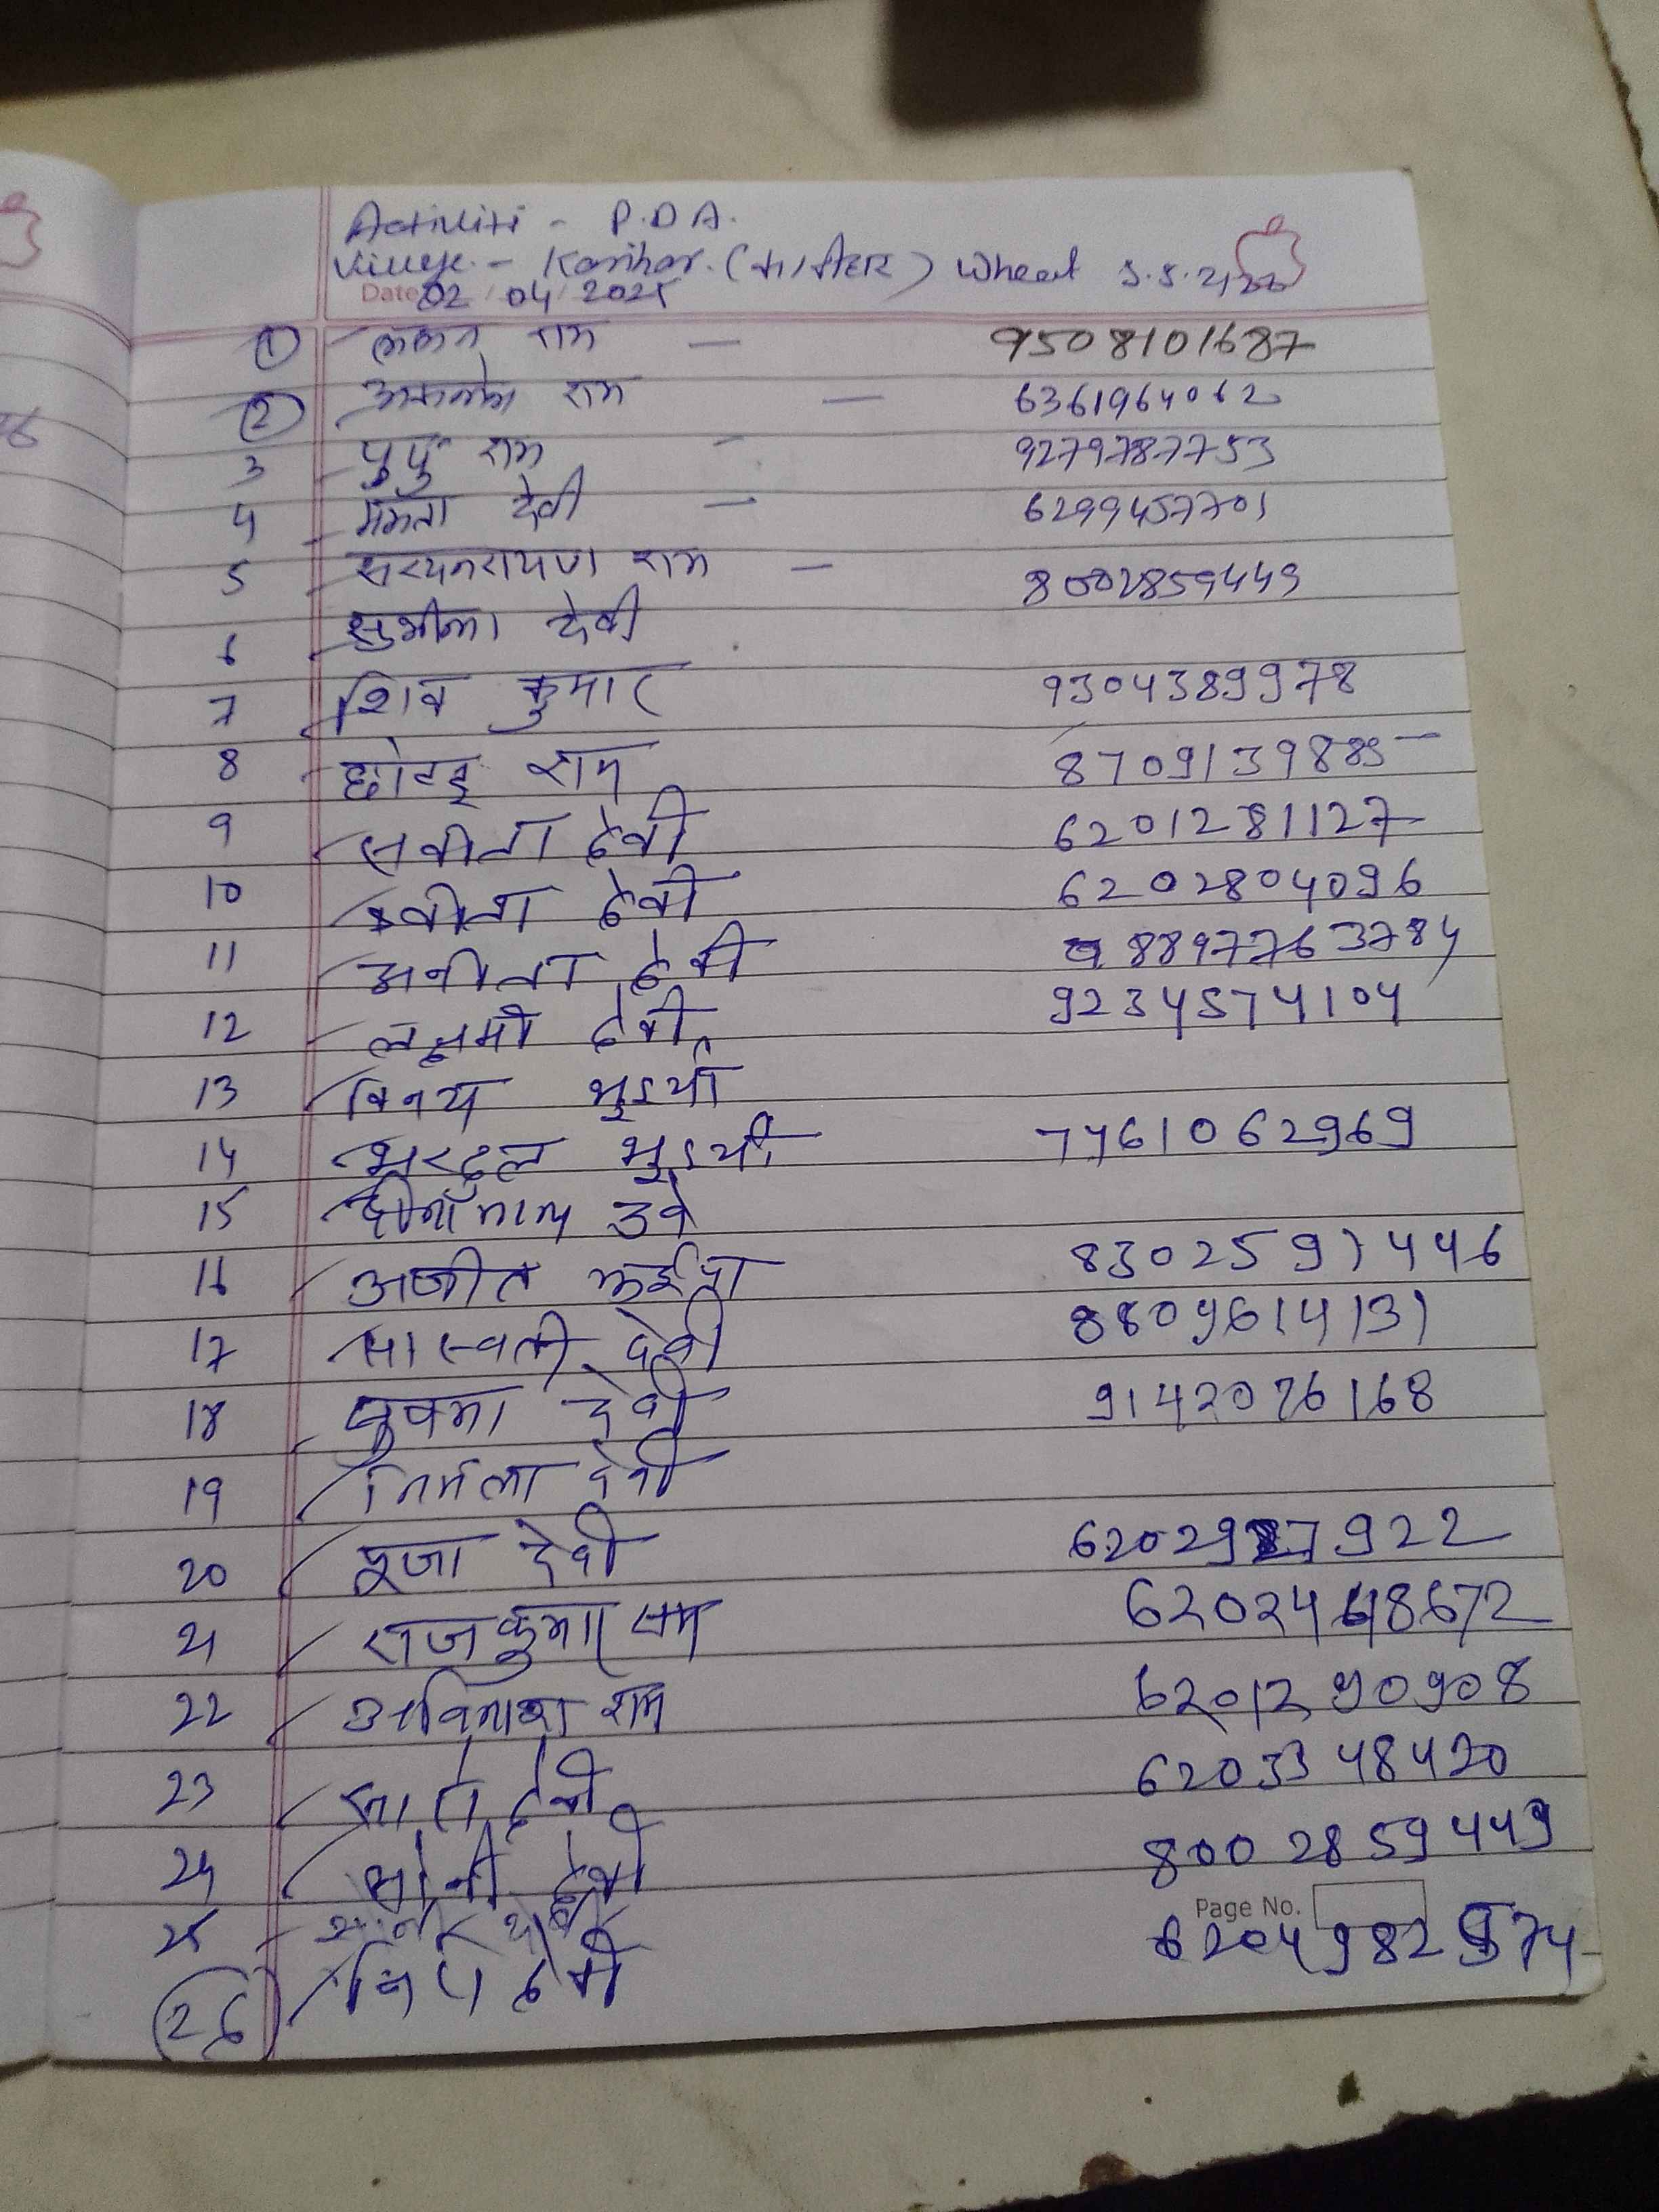 Activiti - P.D.A.
Village - Karihar. ( ) Wheat
Date 02/04/2025
① राम — 9508101687
② राम — 6361964062
3 पुपु राम - 9279787753
4 ममता देवी — 6299457701
5 सत्यनरायण राम — 8002859449
6 सुशीला देवी
7 शिव कुमार 9304389978
8 छोटइ राम 8709139889
9 सवीता देवी 6201281127
10 देवी 6202804096
11 अनीता देवी 8897763784
12 लक्ष्मी देवी 9234574104
13 विनय भुइयाँ
14 भुइयाँ 7461062969
15
16 अजीत 8302597446
17 देवी 8809614131
18 देवी 9142076168
19 निर्मला देवी
20 पूजा देवी 6202927922
21 राजकुमार राम 6202448672
22 अविनाश राम 6201290908
23 देवी 6203348420
24 सोनी देवी 8002859449
25
Page No.
26 देवी 6204982974